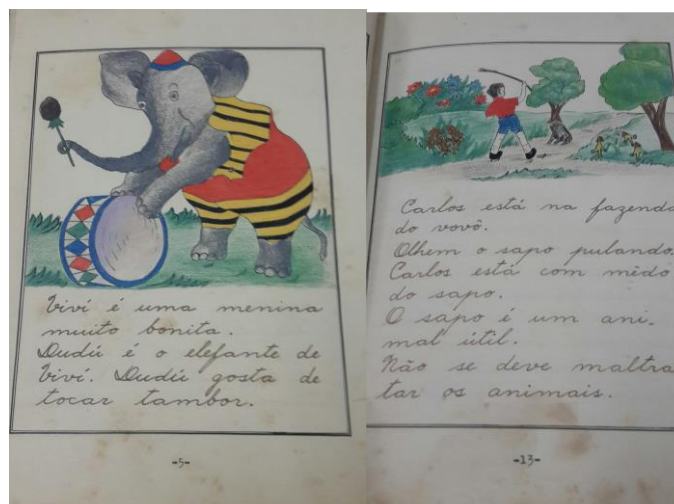 Viví é uma menina
muito bonita.
Dudú é o elefante de
Viví. Dudú gosta de
tocar tambor.
-5-
Carlos está na fazenda
do vovô.
Olhem o sapo pulando.
Carlos está com mêdo
do sapo.
O sapo é um ani-
mal útil.
Não se deve maltra
tar os animais.
-13-